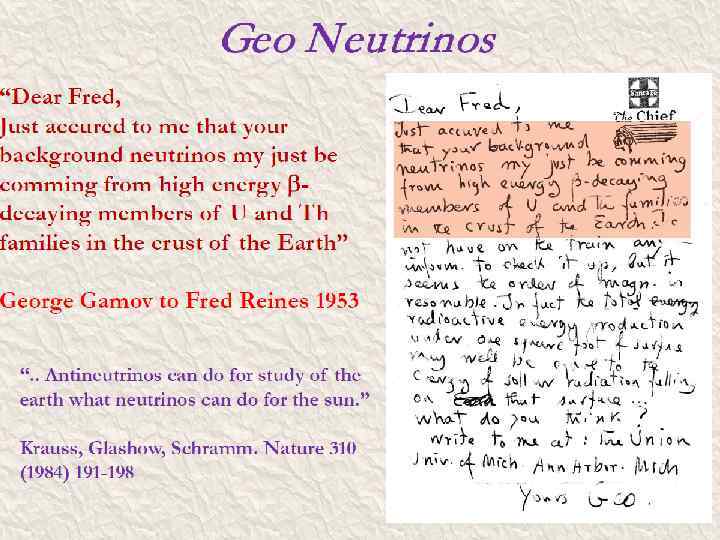 Geo Neutrinos
“Dear Fred,
Just accured to me that your
background neutrinos my just be
comming from high energy β-
decaying members of U and Th
families in the crust of the Earth”
George Gamov to Fred Reines 1953
“.. Antineutrinos can do for study of the
earth what neutrinos can do for the sun.”
Krauss, Glashow, Schramm. Nature 310
(1984) 191-198
Santa Fe
The Chief
Dear Fred,
Just accured to me
that your background
neutrinos my just be comming
from high energy β-decaying
members of U and Th families
in the crust of the Earth. I do
not have on the train any
inform. to check it up, but it
seems the order of magn. is
resonable. In fact the total energy
radioactive energy production
under one square foot of surface
may well be equal to the
energy of solar radiation falling
on that surface...
What do you think?
Write to me at: the Union
Univ. of Mich. Ann Arbor. Mich
Yours Geo